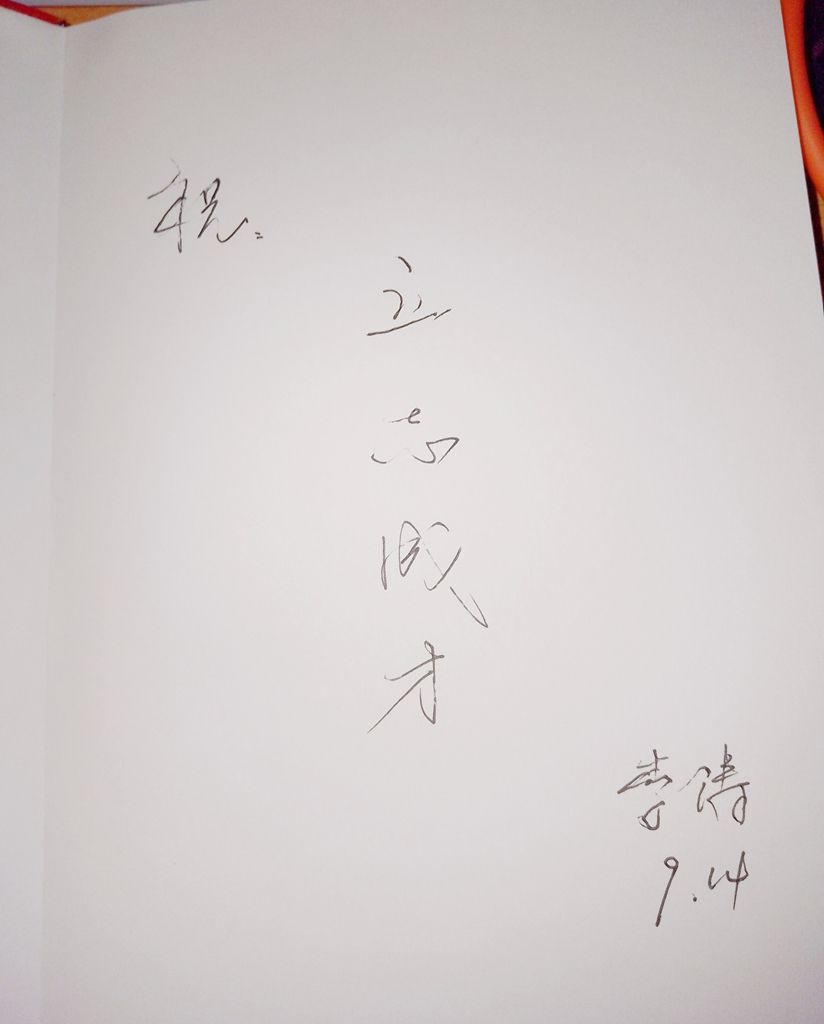 祝:
立
志
成
才
李涛
9.14